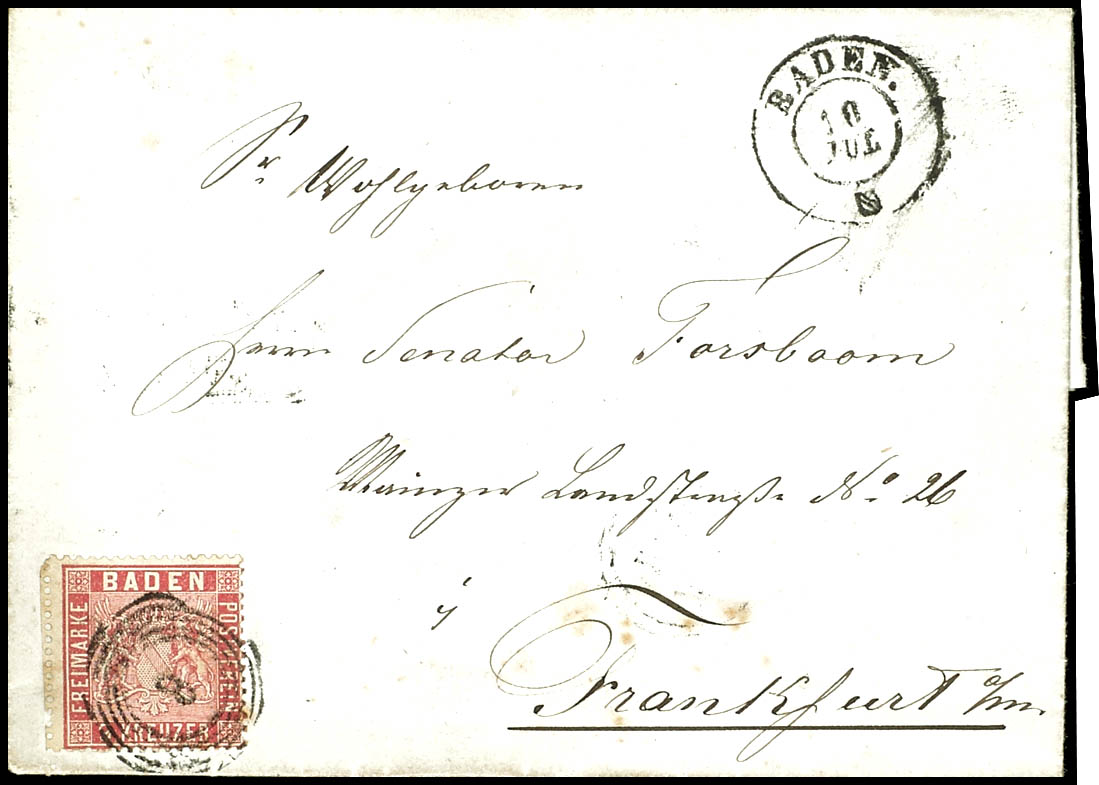 BADEN.
10
JUL
Sr Wohlgeboren
Herrn Senator Forsboom
Mainzer Landstraße No. 26
Frankfurt a/m.
BADEN
FREIMARKE
POSTVEREIN
KREUZER
8